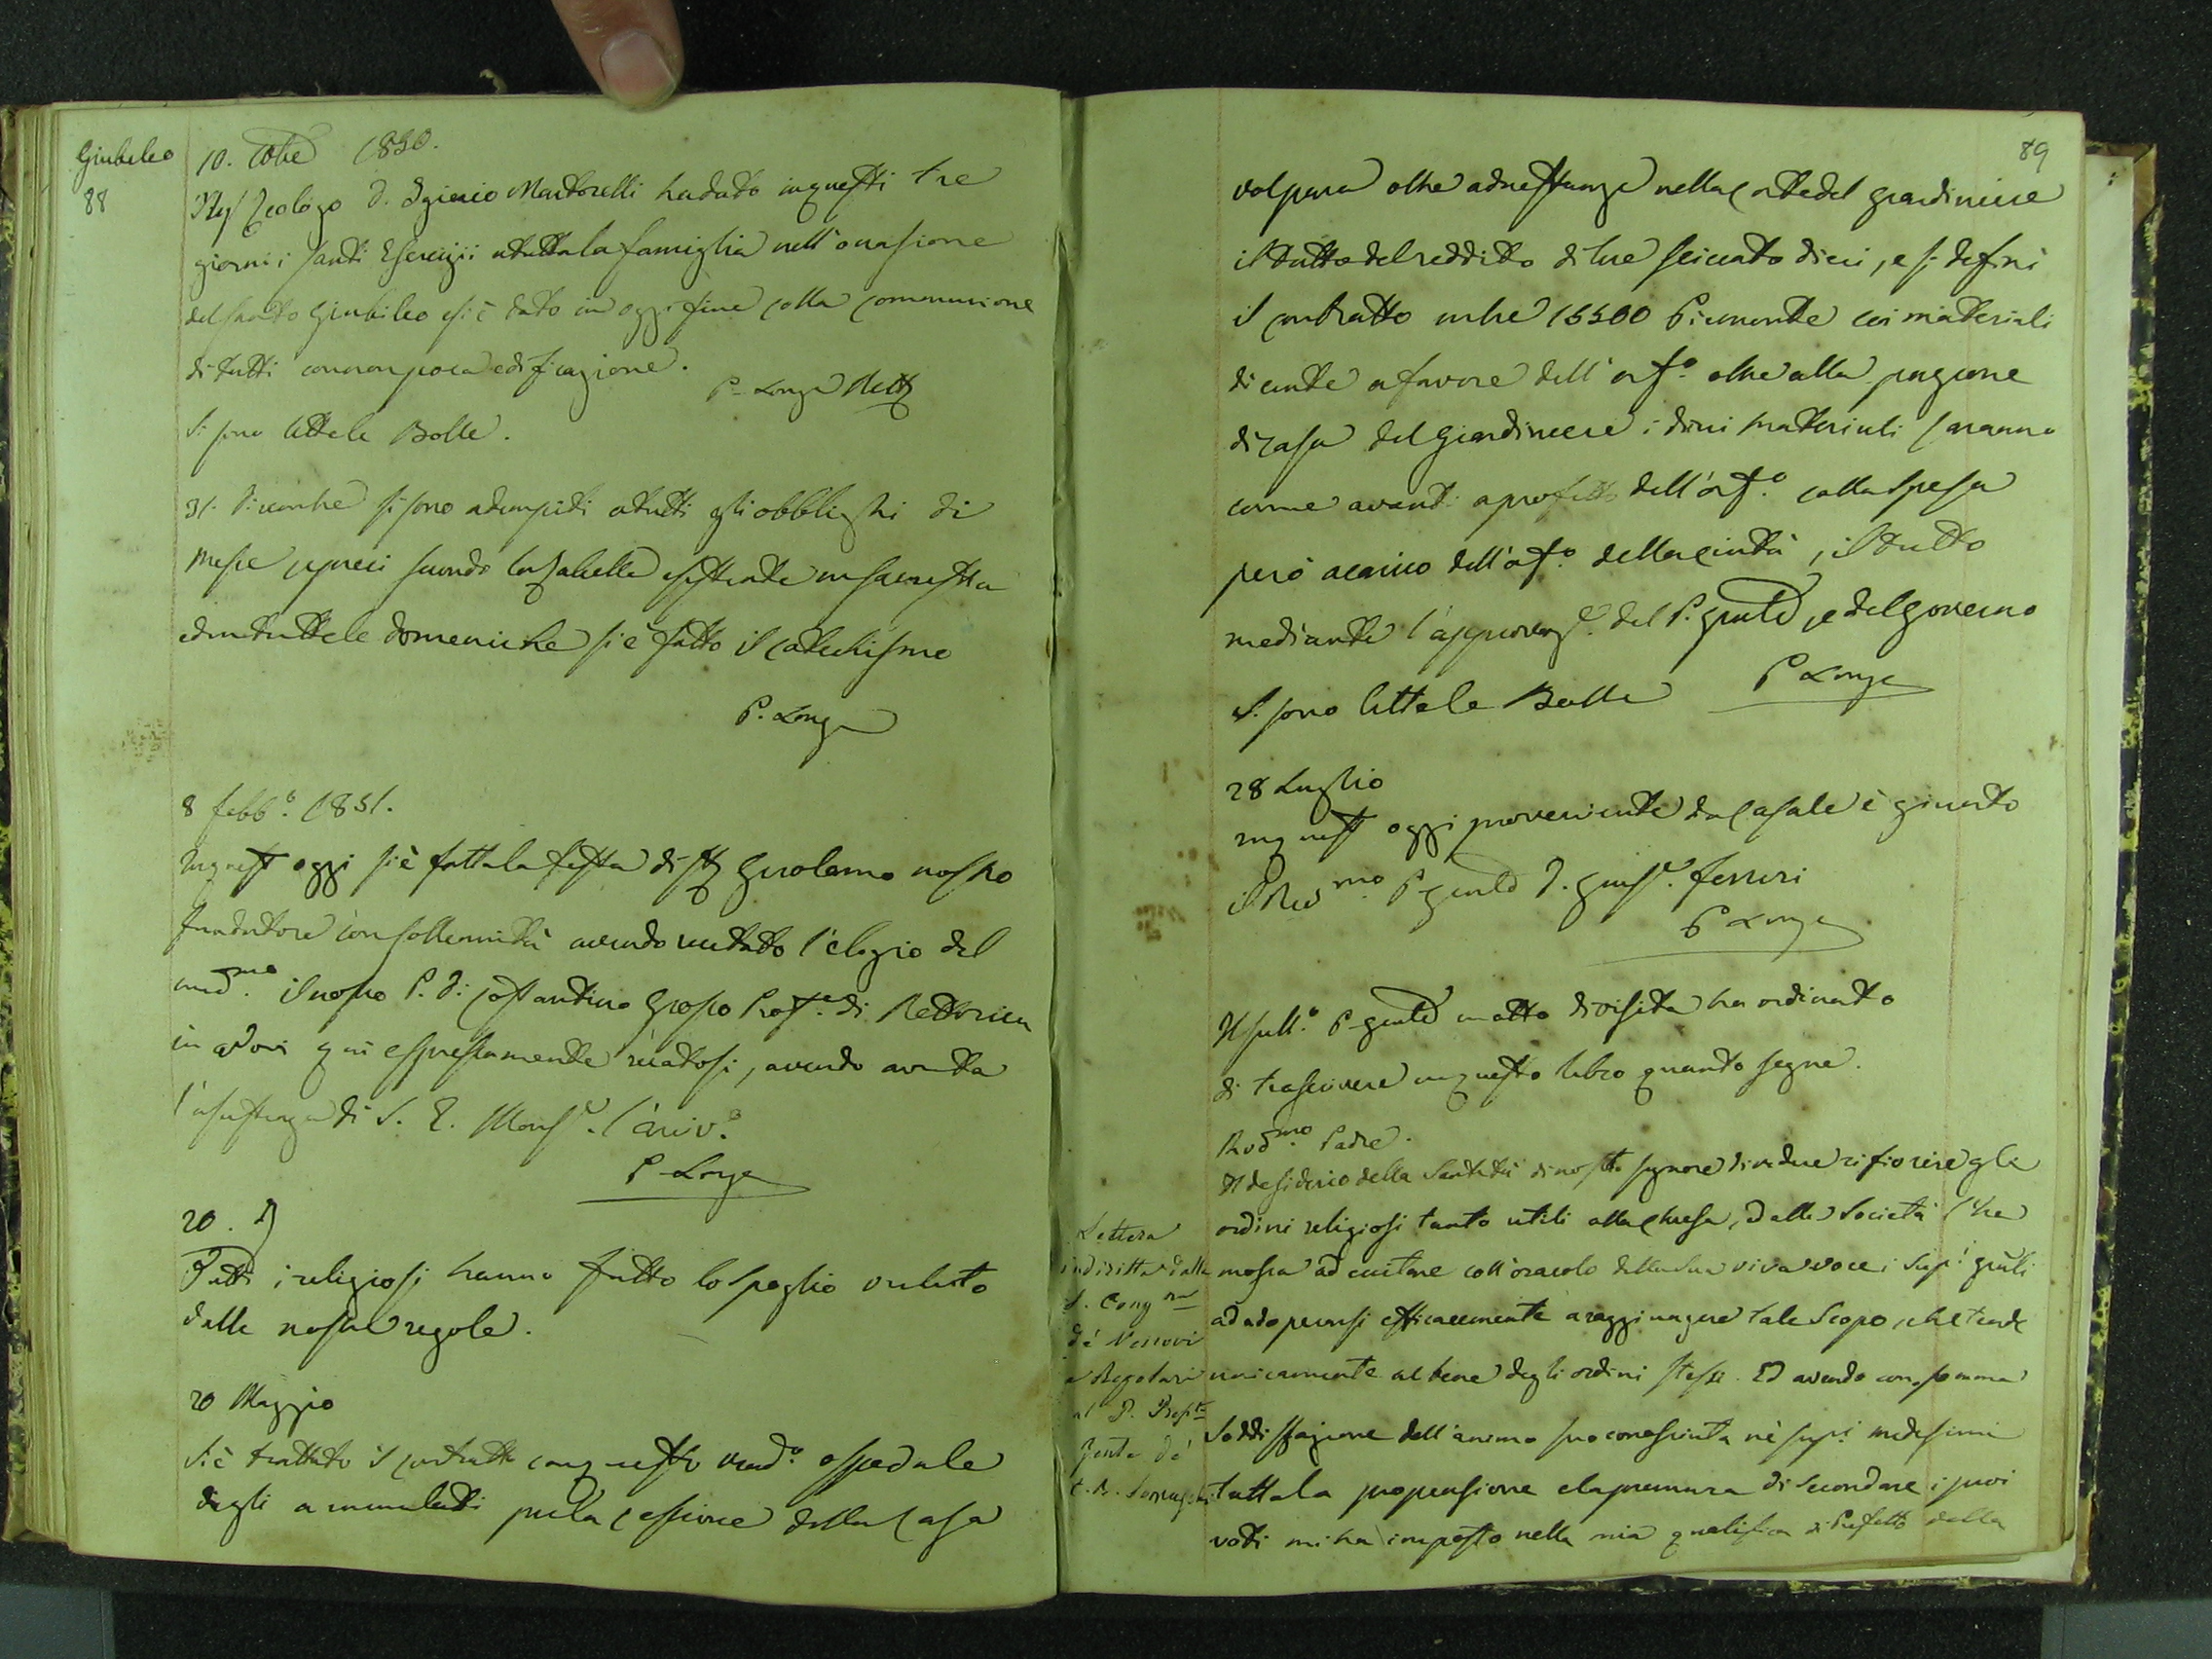 Giubileo
88
10. Xbre 1850.
Il Sig. Teologo D. Iginio Martorelli ha dato in questi tre
giorni i santi Esercizii a tutta la famiglia nell'occasione
del santo Giubileo e si è dato in oggi fine colla communione
di tutti con non poca edificazione.
P. Longa Rett.
Si sono lette le Bolle.
31. Dicembre si sono adempiti a tutti gli obblighi di
Messe, e preci secondo la Tabella esistente in sacrestia
ed in tutte le domeniche si è fatto il catechismo
P. Longa
8 febb.o 1851.
In quest'oggi si è fatta la festa di S. Girolamo nostro
fundatore con sollennità avendo recitato l'elogio del
med.mo il nostro P. D. Costantino Grosso Prof.e di Rettorica
in qui espressamente recatosi, avendo avuta
l'assistenza di S. E. Mons.e l'Arciv.o
P. Longa
20. D
Tutti i religiosi hanno fatto lo spoglio voluto
dalle nostre regole.
20 Maggio
Si è trattato il contratto con questo vend.o ospedale
degli ammalati per la cessione della casa
89
val pura oltre adnesstanze nella corte del giardiniere
il tutto del reddito di lire seicento dieci, e si definì
il contratto in lire 15500 Piemonte coi materiali
di ente a favore dell'orf.o oltre alla pigione
di casa del Giardiniere i dini materiali saranno
come avanti a profitto dell'orf.o colla spesa
però a carico dell'orf.o della Città, il tutto
mediante l'approvaz.e del P. Gnãle, e del governo
Si sono lette le Bolle P. Longa
28 Luglio
In quest'oggi proveniente da Casale è giunto
il Rev.mo P. Gnãle D. Gius.e Ferreri
P. Longa
Il sull.o P. Gnãle in atto di visita ha ordinato
di trascrivere in questo libro quanto segue.
Rvd.mo Padre.
Il desiderio della Santità di nostro Signore di vedere rifiorire gli
ordini religiosi tanto utili alla Chiesa, ed alla Società l'ha
mossa ad eccitare coll'oracolo della sua viva voce i Sup.i gñli
ad adoperarsi efficacemente a raggiungere tale Scopo, che tende
unicamente al bene degli ordini stessi. Ed avendo con somma
soddisfazione dell'animo suo conosciuta nè sup.i medesimi
tutta la propensione e la premura di secondare i suoi
voti mi ha imposto nella mia qualifica di Prefetto della
Lettera
indiritta dalla
S. Cong.ne
dè Vescovi
e Regolari
al P. Prep.to
Gñle dè
C. R. Somaschi